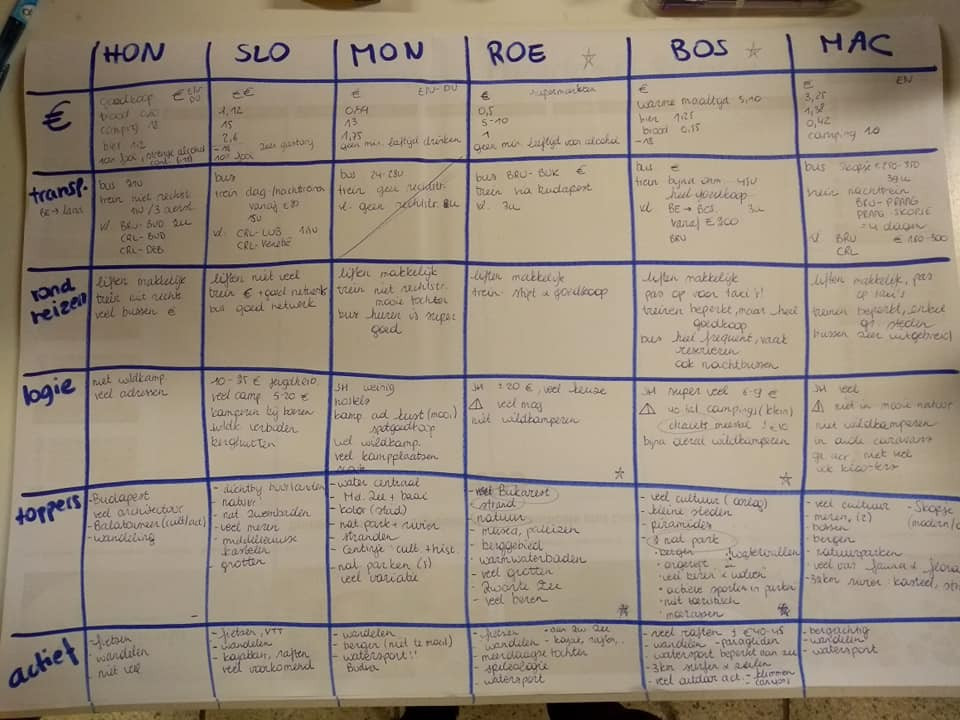 HON SLO MON ROE BOS MAC
€
goedkoop € EN/DU
brood
camping
bier 1.2
€€
1,12
15
2,6
-18 zeer gastvrij
€ EN-DU
0,54
13
1,75
geen min. leeftijd drinken
€ supermarkten
0,5
5-10
1
geen min. leeftijd voor alcohol
€
warme maaltijd 5,10
bier 1,25
brood 0,55
-18
€ EN
3,25
1,38
0,42
camping 10
transp.
BE → land
bus
trein niet rechtst.
vl BRU-BUD 2u
CRL-BUD
CRL-DEB
bus
trein dag/nachttrein
vanaf €80
15u
vl. CRL-LUB
CRL-Venetië
bus 24-28u
trein geen rechtstr.
vl. geen rechtstr.
bus BRU-BUK €
trein via budapest
vl. 3u
bus €
trein bijna ohm. 45u
heel goedkoop
vl BE → BOS. 3u
vanaf €300
BRU
bus Skopje €250-350
39u
trein nachttrein
BRU-PRAAG
PRAAG-SKOPJE
= 4 dagen
vl BRU € 150-300
CRL
rond
reizen
liften makkelijk
trein niet rechts
veel bussen €
liften niet veel
trein € + goed netwerk
bus goed netwerk
liften makkelijk
trein niet rechtstr.
mooie tochten
bus huren is super
goed
liften makkelijk
trein stipt & goedkoop
liften makkelijk
pas op voor taxi's!
treinen beperkt, maar heel
goedkoop
bus heel frequent, vaak
reserveren
ook nachtbussen
liften makkelijk, pas
op taxi's
treinen beperkt, enkel
gr steden
bussen zeer uitgebreid
logie
niet wildkamp.
veel adressen
10-25 € jeugdherb.
veel camp. 5-20 €
kamperen bij boeren
wildk verboden
berghutten
JH weinig
hostels
kamp ad kust (mooi)
spotgoedkoop
veel wildkamp.
veel kampplaatsen
JH ± 20 €, veel keuze
⚠ veel mag
niet wildkamperen
JH super veel 6-9 €
⚠ campings (klein)
chalets meestal ± €10
bijna overal wildkamperen
JH veel
⚠ niet in mooie natuur
niet wildkamperen
in oude caravans
ook kloosters
toppers
- Budapest
veel architectuur
- Balatonmeer
- wandeling
- dichtbij buurlanden
- natuur
- nat zwembaden
- veel meren
- middeleeuwse
kastelen
- grotten
- water centraal
- Md. Zee + baai
- kotor (stad)
- nat. park + rivier
- stranden
- Centinje: cult. + hist.
- nat parken (5)
veel variatie
- Bukarest
- strand
- natuur
- musea, paleizen
- berggebied
- warmwaterbaden
- veel grotten
- Zwarte Zee
- veel beren
- veel cultuur (oorlog)
- kleine steden
- piramides
- 3 nat park
• bergen • watervallen
• ongerept
• veel beren & wolven
• actieve sporten in parken
• niet toeristisch
• moerassen
- veel cultuur - Skopje
- meren, (2) (modern/
- bossen
- bergen
- natuurparken
- veel var fauna & flora
actief
- fietsen
- wandelen
- niet veel
- fietsen, VTT
- wandelen
- kajakken, raften
veel voorkomend
- wandelen
- bergen (niet te mooi)
- watersport!!
Budva
- fietsen
- wandelen - kajak, raften, ..
- meerdaagse tochten
- speleologie
- watersport
- veel raften ± €40-45
- wandelen - paragliden
- watersport beperkt aan zee
- 3km surfen & zeilen
- veel outdoor act. - klimmen
- canyons
- bergachtig
- wandeling
- watersport